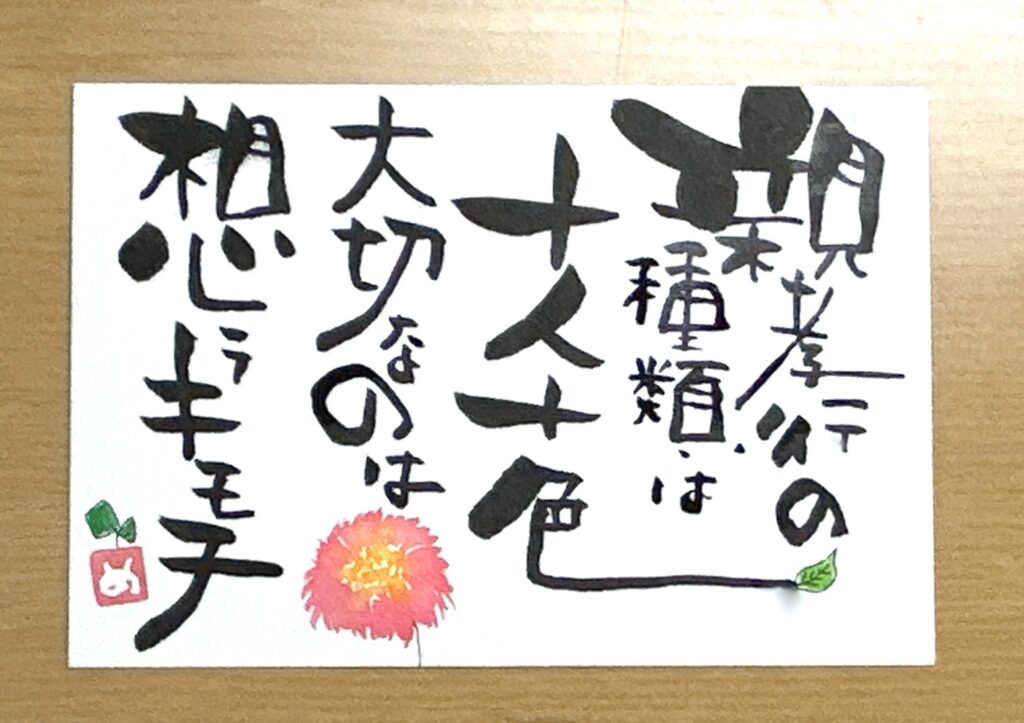 親孝行の
種類は
十人十色
大切なのは
想うキモチ
め